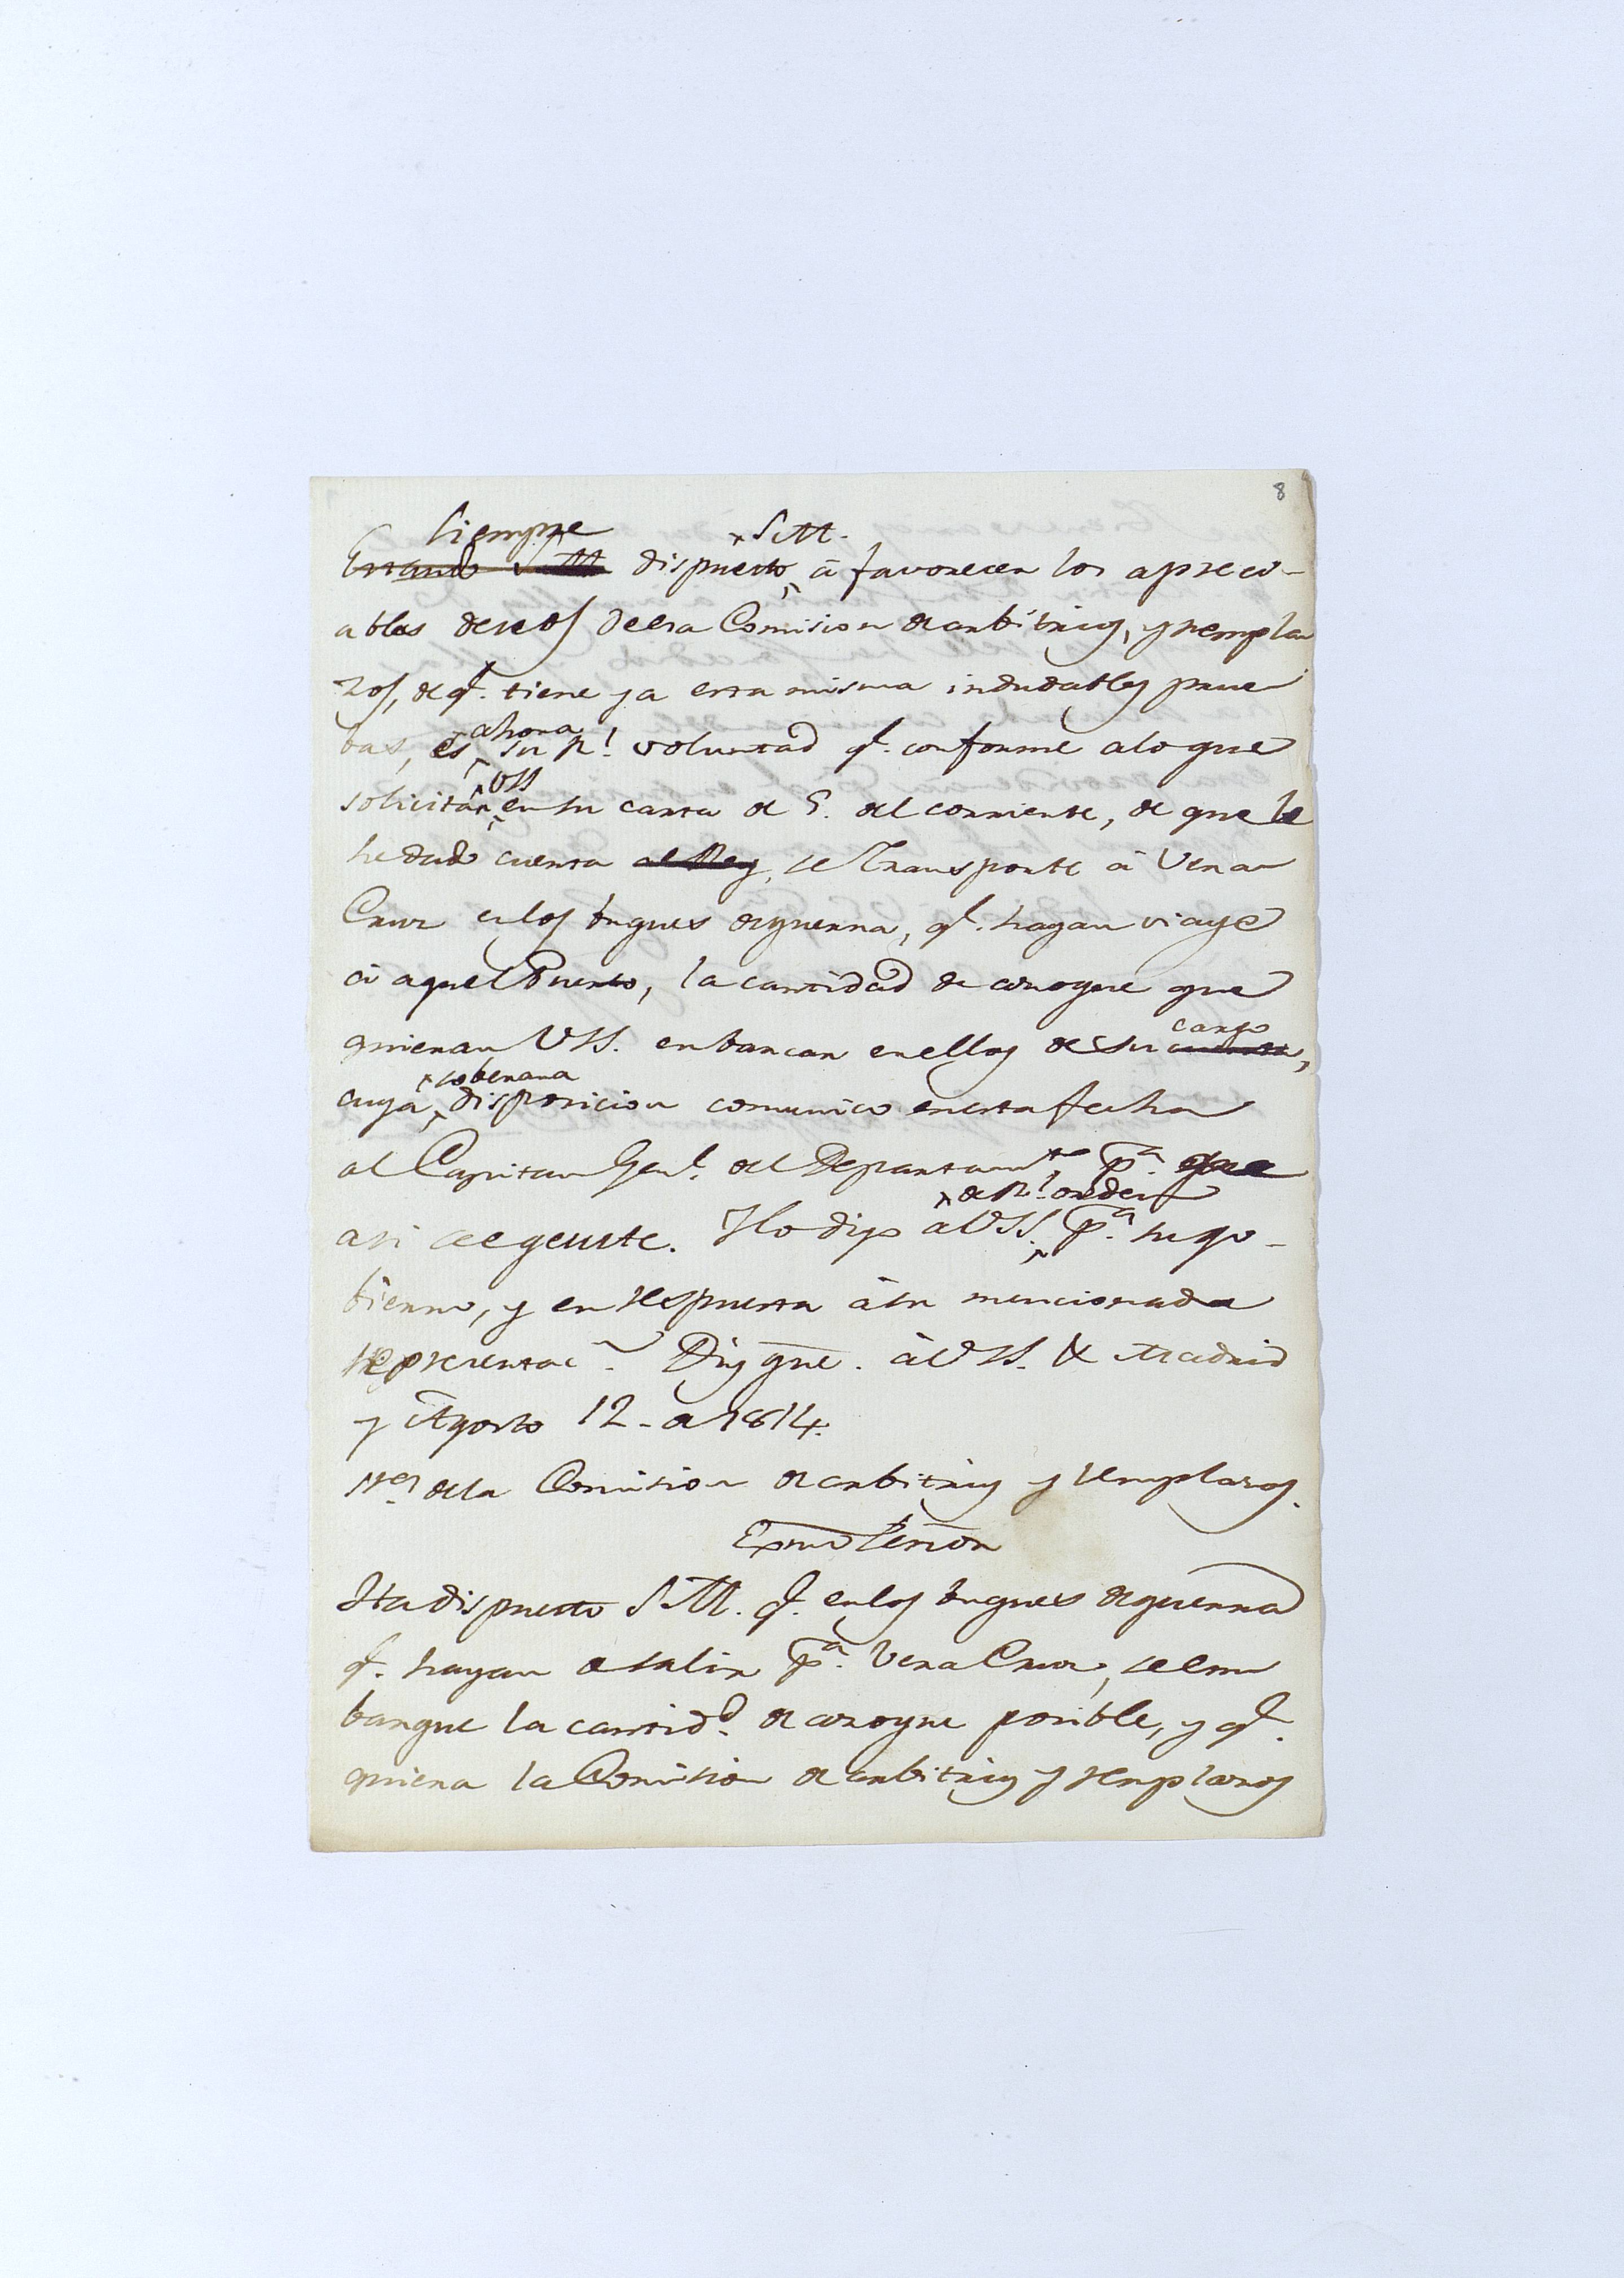 8
Siempre S.M.
Estando S.M. dispuesto à favorecer los apreci-
ables deseos de esa Comision de arbitrios, y reempla
zos, de q.e tiene ya esta misma indudables prue
ahora
bas, es su R.l voluntad q.e conforme a lo que
VSS
solicitan en su carta de 5. del corriente, de que le
he dado cuenta al Rey, se transporte à Vera
Cruz en los buques de guerra, q.e hagan viage
à aquel Puerto, la cantidad de azogue que
cargo
quieran VSS. enbarcar en ellos de su cuenta,
soberana
cuya disposicion comunico en esta fecha
al Capitan Gen.l del Departam.to p.a que
de R.l orden
asi se egecute. Y lo digo a VSS. p.a su go-
bierno, y en respuesta à su mencionada
representac.n Dios gue. à VSS. &c Madrid
y Agosto 12 - de 1814.
S.res de la Comision de arbitrios y reemplazos.
Exmo Señor
Ha dispuesto S.M. q.e en los buques de guerra
q.e hayan de salir p.a Vera Cruz, se em
barque la cantid.d de azogue posible, y q.e
quiera la Comision de arbitrios y reemplazos